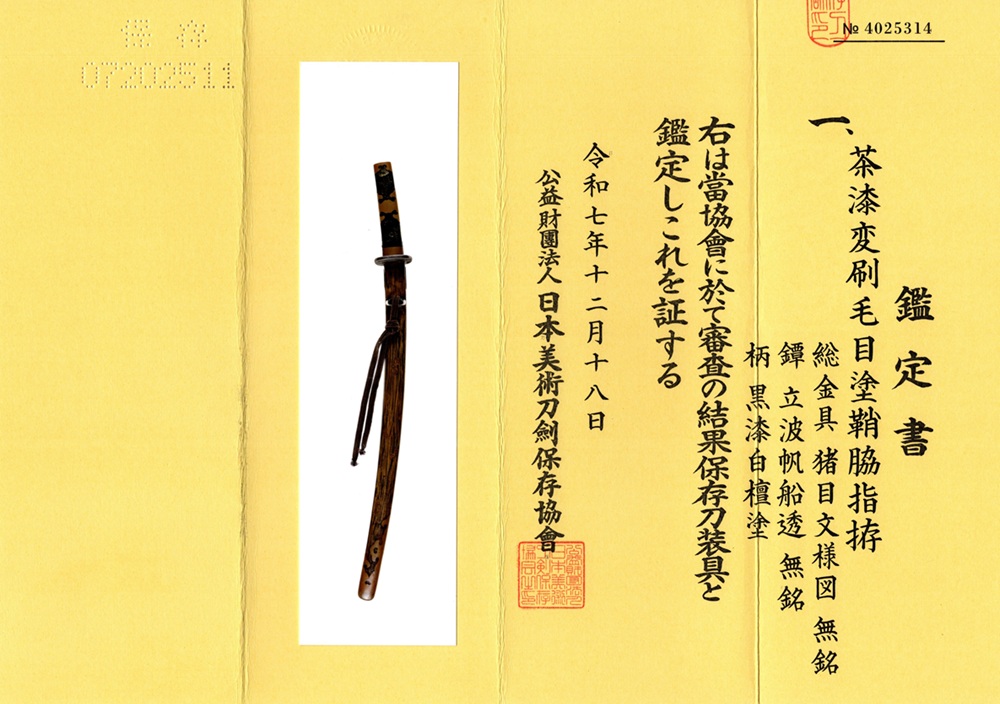 № 4025314
鑑定書
一、茶漆変刷毛目塗鞘脇指拵
総金具 猪目文様図 無銘
鐔 立波帆船透 無銘
柄 黒漆白檀塗
右は當協會に於て審査の結果保存刀装具と
鑑定しこれを証する
令和七年十二月十八日
公益財團法人日本美術刀劍保存協會
保存
07202511